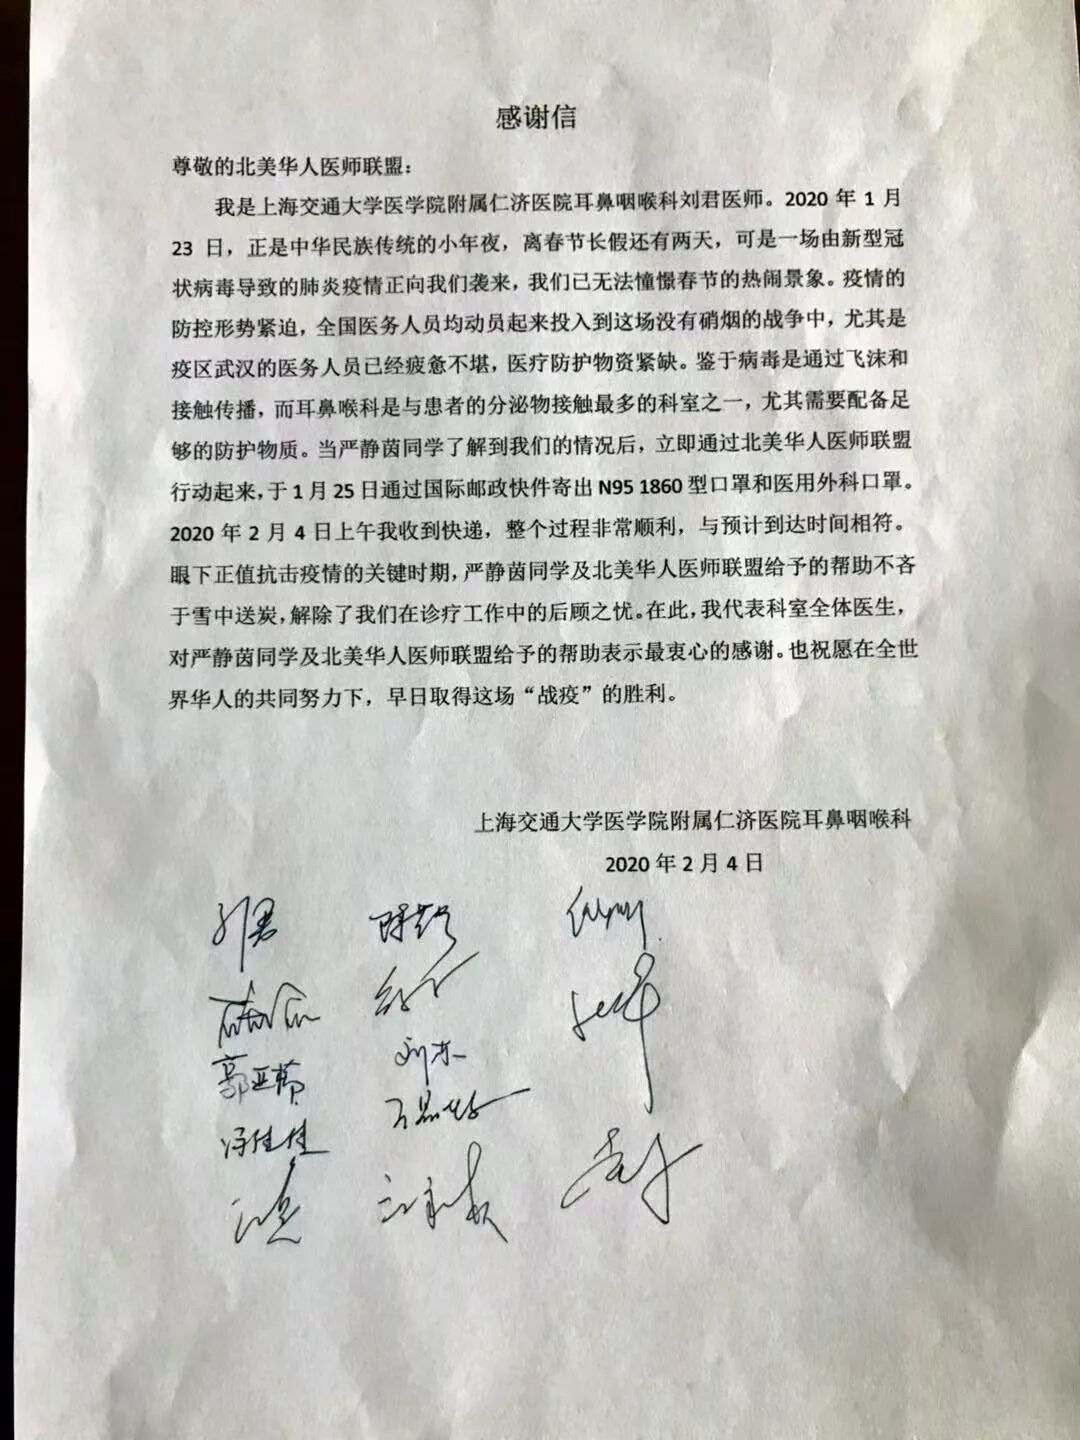 感谢信
尊敬的北美华人医师联盟：
我是上海交通大学医学院附属仁济医院耳鼻咽喉科刘君医师。2020 年 1 月
23 日，正是中华民族传统的小年夜，离春节长假还有两天，可是一场由新型冠
状病毒导致的肺炎疫情正向我们袭来，我们已无法憧憬春节的热闹景象。疫情的
防控形势紧迫，全国医务人员均动员起来投入到这场没有硝烟的战争中，尤其是
疫区武汉的医务人员已经疲惫不堪，医疗防护物资紧缺。鉴于病毒是通过飞沫和
接触传播，而耳鼻喉科是与患者的分泌物接触最多的科室之一，尤其需要配备足
够的防护物质。当严静茵同学了解到我们的情况后，立即通过北美华人医师联盟
行动起来，于 1 月 25 日通过国际邮政快件寄出 N95 1860 型口罩和医用外科口罩。
2020 年 2 月 4 日上午我收到快递，整个过程非常顺利，与预计到达时间相符。
眼下正值抗击疫情的关键时期，严静茵同学及北美华人医师联盟给予的帮助不吝
于雪中送炭，解除了我们在诊疗工作中的后顾之忧。在此，我代表科室全体医生，
对严静茵同学及北美华人医师联盟给予的帮助表示最衷心的感谢。也祝愿在全世
界华人的共同努力下，早日取得这场“战疫”的胜利。
上海交通大学医学院附属仁济医院耳鼻咽喉科
2020 年 2 月 4 日
刘君